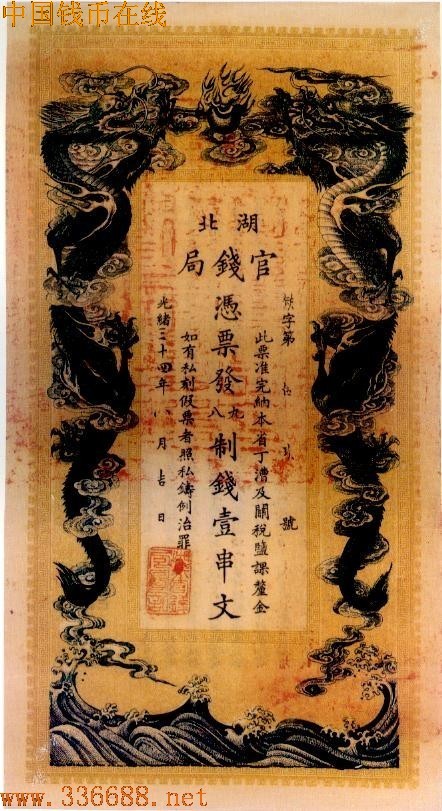 中国钱币在线
湖北
官錢局
字第 號
此票准完納本省丁漕及關稅鹽課釐金
憑票發九八制錢壹串文
如有私刻假票者照私鑄例治罪
光緒三十四年 月吉日
www.336688.net